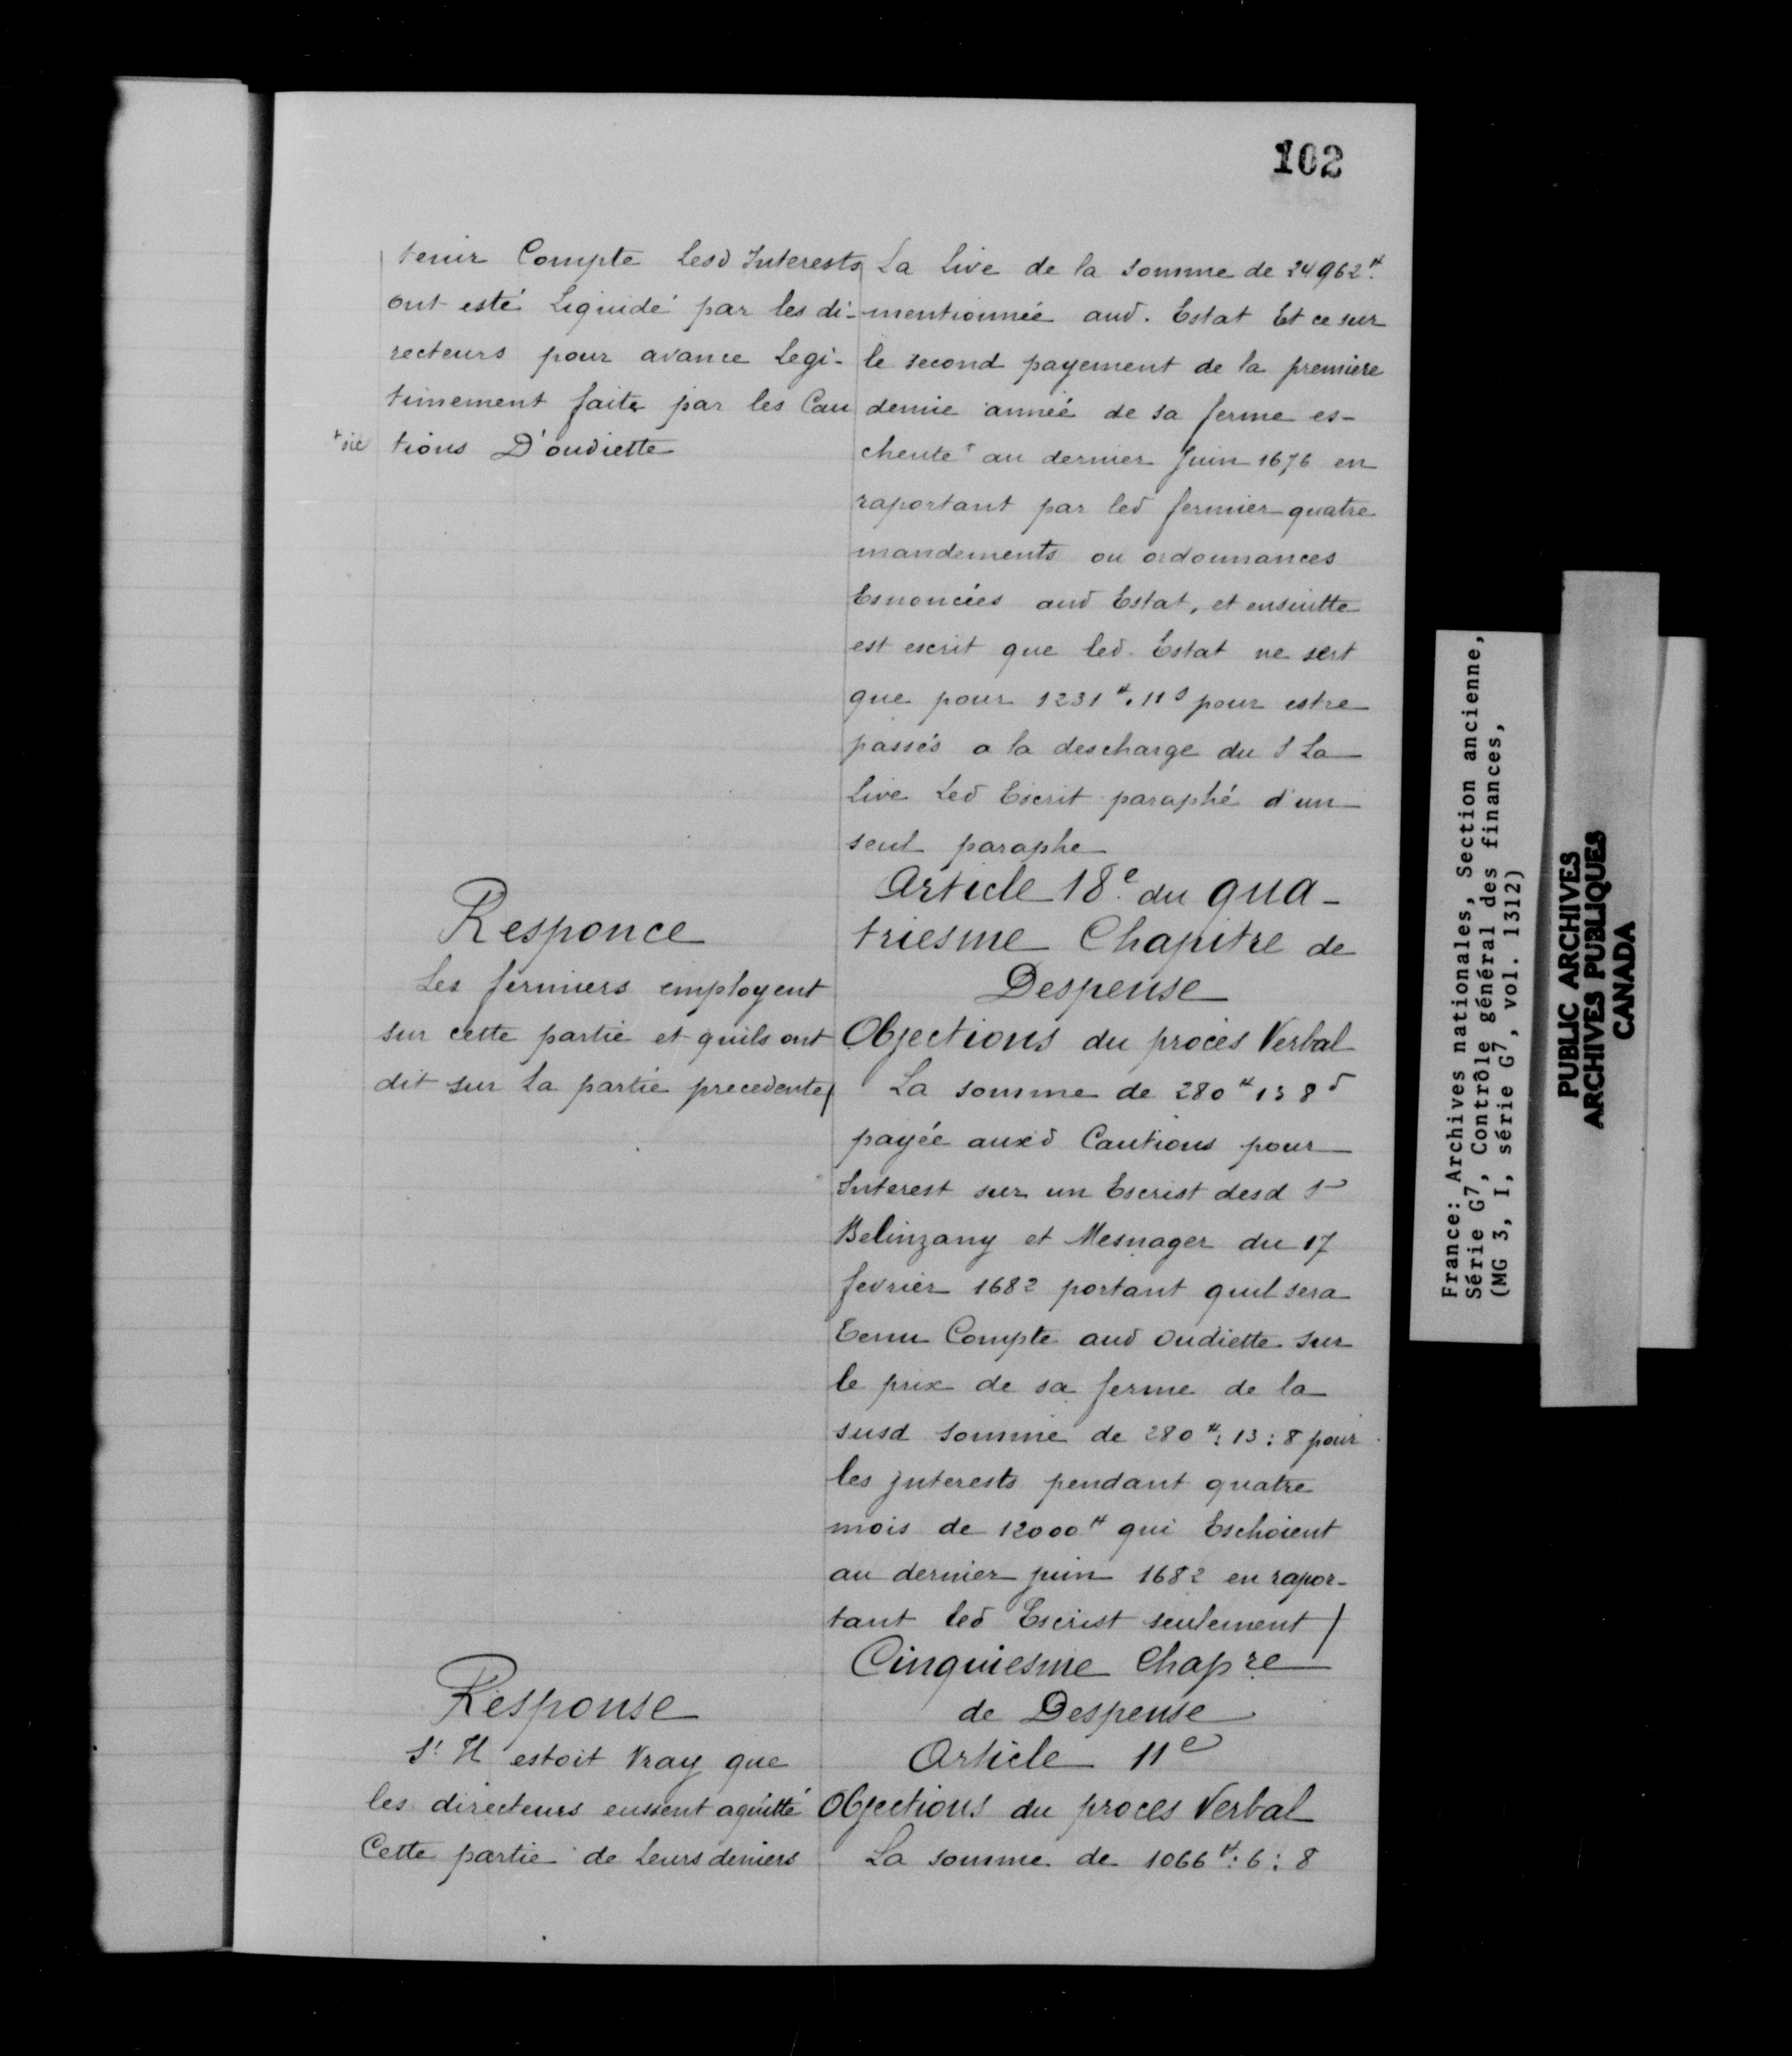 102
tenir Compte Lesd Interests
ont esté Liquidé par les di-
recteurs pour avance Legi-
timement faite par les Cau
+sic
tions D'oudiette
La Live de la somme de 24962#.
mentionnée aud. Estat Et ce sur
le second payement de la premiere
demie année de sa ferme es-
cheute+ au dernier Juin 1676 en
raportant par led fermier quatre
mandements ou ordonnances
Esnoncées aud Estat, et ensuitte
est escrit que led. Estat ne sert
que pour 1231#. 11s pour estre
passés a la descharge du S La
Live Led Escrit paraphé d'un
seul paraphe
Responce
Les fermiers employent
sur cette partie et quils ont
dit sur la partie precedente/
Article 18e. du qua-
triesme Chapitre de
Despense
Objections du procès Verbal
La somme de 280# 13 8d
payée auxd Cautions pour
Interest sur un Escrist desd S
Belinzany et Mesnager du 17
fevrier 1682 portant quil sera
Tenu Compte aud Oudiette sur
le prix de sa ferme de la
susd somme de 280#: 13: 8 pour
les jnterests pendant quatre
mois de 12000# qui Eschoient
au dernier juin 1682 en rapor-
tant led Escrist seulement /
Response
S'Il estoit Vray que
les directeurs eussent aquitté
Cette partie de Leurs deniers
Cinquiesme Chapre
de Despense
Article 11e
Objections du proces Verbal
La somme de 1066#: 6: 8
France: Archives nationales, Section ancienne,
Série G7, Contrôle général des finances,
(MG 3, I, série G7, vol. 1312)
PUBLIC ARCHIVES
ARCHIVES PUBLIQUES
CANADA